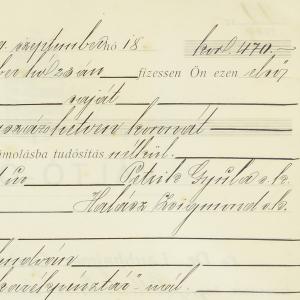 szeptember hó 18 kor. 470.–
ber hó 23án fizessen Ön ezen első
saját
százhetven koronát
számolásba tudósítás nélkül.
Petrik Gyula s.k.
Halász Zsigmond s.k.
takarékpénztár"-nál.